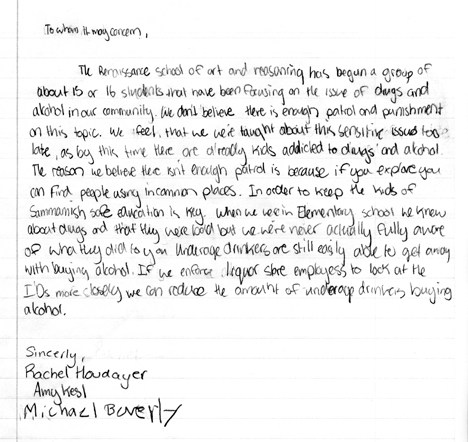 To whom it may concern,
The Renaissance school of art and reasoning has begun a group of
about 15 or 16 students that have been focusing on the issue of drugs and
alcohol in our community. We don't believe there is enough patrol and punishment
on this topic. We feel, that we we're taught about this sensitive issue too
late, as by this time there are already kids addicted to drugs and alcohol.
The reason we believe there isn't enough patrol is because if you explore you
can find people using in common places. In order to keep the kids of
Sammamish safe education is key. When we we're in Elementary school we knew
about drugs and that they were bad but we we're never actually fully aware
of what they did to you. Underage drinkers are still easily able to get away
with buying alcohol. If we enforce liquor store employess to look at the
I'Ds more closely we can reduce the amount of underage drinkers buying
alcohol.
Sincerly,
Rachel
Amy
Michael Baverly